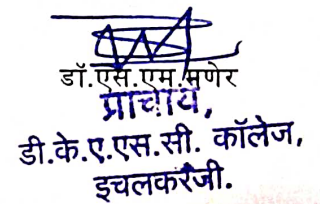 डॉ.एस.एम.मणेर
प्राचार्य,
डी.के.ए.एस.सी. कॉलेज,
इचलकरंजी.